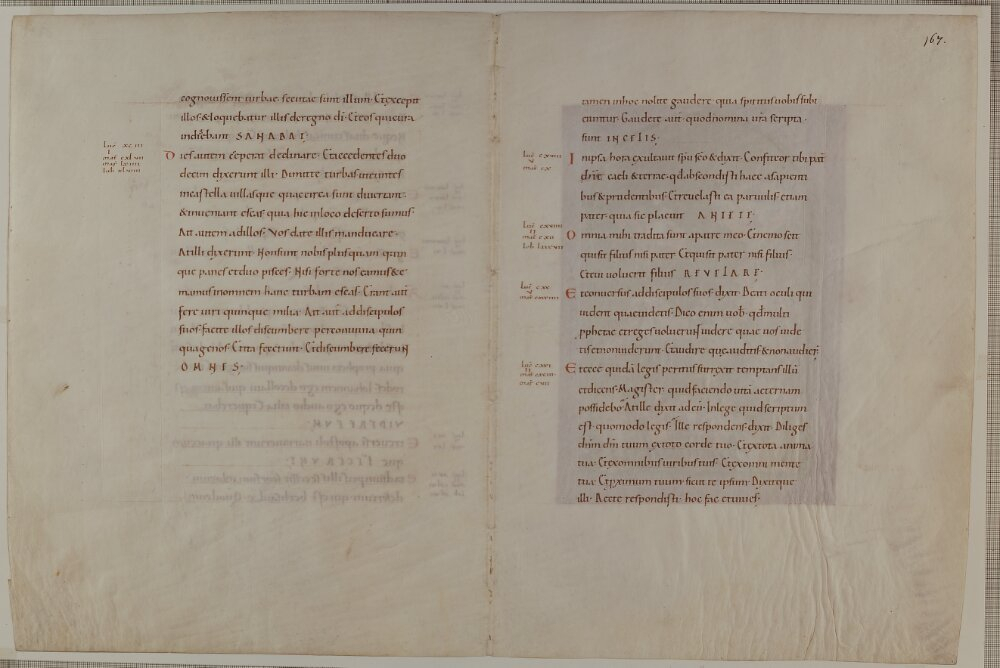 cognovissent turbae secutae sunt illum · Et excepit
illos & loquebatur illis de regno di · Et eos qui cura
indiebant SANABAT ·
Dies autem coeperat declinare · Et accedentes duo
decim dixerunt illi · Dimitte turbas ut euntes
in castella villasque quae circa sunt divertant ·
& inveniant escas quia hic in loco deserto sumus ·
Ait autem ad illos · Vos date illis manducare ·
At illi dixerunt · Non sunt nobis plus quam quin
que panes et duo pisces · Nisi forte nos eamus & e
mamus in omnem hanc turbam escas · Erant aut
fere viri quinque milia · Ait aut ad discipulos
suos · facite illos discumbere per convivia quin
quagenos · Et ita fecerunt · Et discumbere fecerunt
OMNES ·
167.
tamen in hoc nolite gaudere quia spiritus vobis subi
ciuntur · Gaudete aut quod nomina vra scripta
sunt IN CELIS ·
In ipsa hora exultavit spu sco & dixit · Confiteor tibi pat
dne caeli & terrae · qd abscondisti haec a sapienti
bus & prudentibus · Et revelasti ea parvulis etiam
pater · quia sic placuit ANTE TE ·
Omnia mihi tradita sunt a patre meo · Et nemo scit
qui sit filius nisi pater · Et qui sit pater nisi filius ·
Et cui voluerit filius REVELARE ·
Et conversus ad discipulos suos dixit · Beati oculi qui
vident quae videtis · Dico enim vob · qd multi
pphetae et reges voluerunt videre quae vos vide
tis et non viderunt · Et audire que auditis & non audier
Et ecce quida legis peritus surrexit temptans illu
et dicens · Magister quid faciendo vita aeternam
possidebo · At ille dixit ad eu · In lege quid scriptum
est · quomodo legis · Ille respondens dixit · Diliges
dnm dm tuum ex toto corde tuo · Et ex tota anima
tua · Et ex omnibus viribus tuis · Et ex omni mente
tua · Et pximum tuum sicut te ipsum · Dixitque
illi · Recte respondisti · hoc fac et vives ·